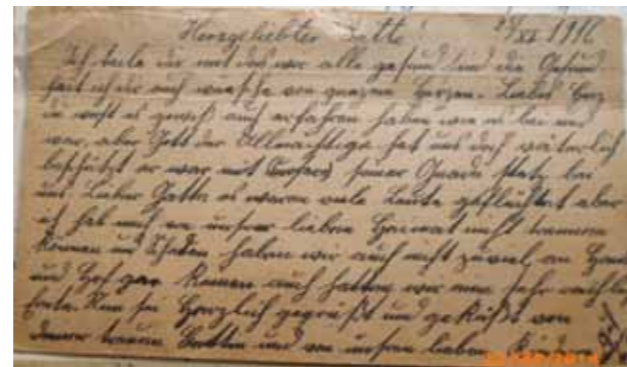 Herzgeliebter Gatte! 29/XI 1916
Ich teile dir mit das wir alle gesund sind die Gesund
heit ich dir auch wünsche von ganzem Herzen. Liebes Herz
du wirst es gewiß auch erfahren haben wie es bei uns
war, aber Gott der Allmächtige hat uns doch väterlich
beschützt er war mit seiner Gnade stets bei
uns. Lieber Gatte es waren viele Leute geflüchtet aber
ich hab mich von unsrer lieben Heimat nicht trennen
können und Schaden haben wir auch nicht zuviel an Haus
und Hof gar keinen auch hatten wir eine sehr reichliche
Ernte. Nun sei Herzlich gegrüßt und geküßt von
deiner treuen Gattin und von unsren lieben Kindern